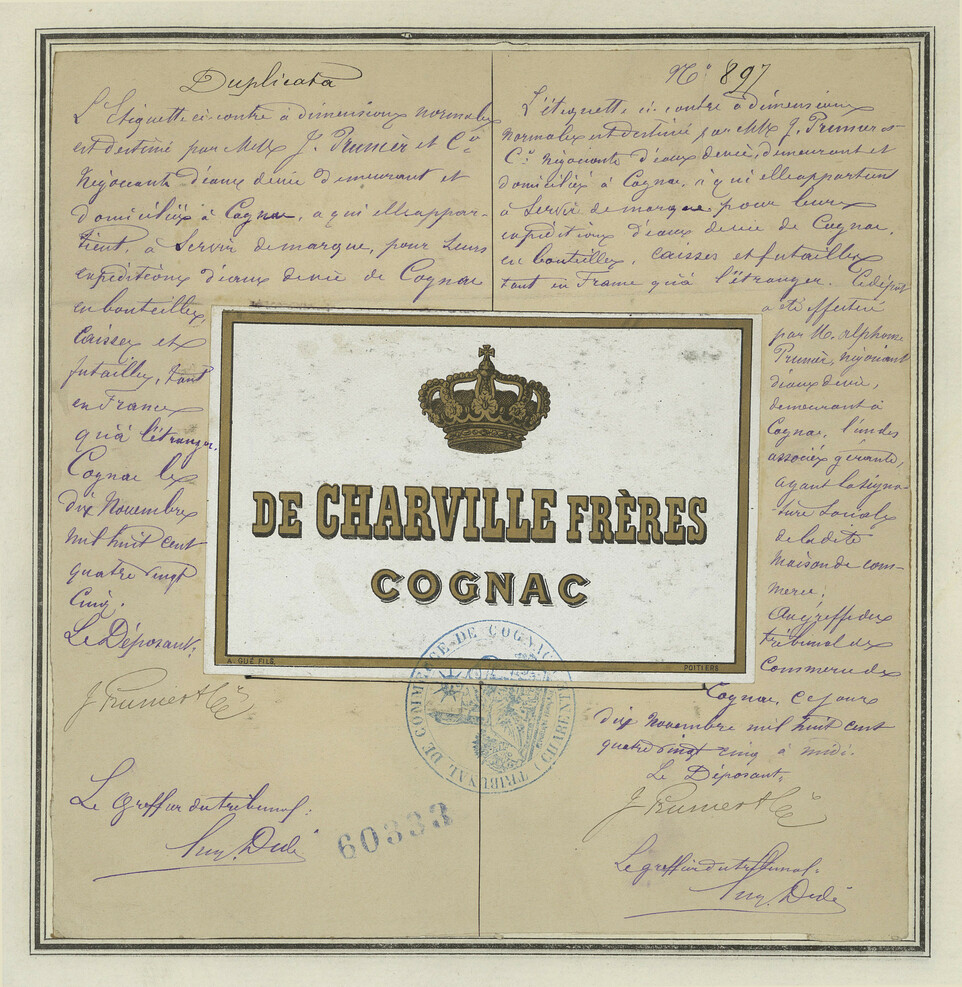 Duplicata
L'Etiquette ci-contre à dimensions normales
est destiné par MMrs J. Prunier et Cie
Négociants d'eaux devie demeurant et
domiciliés à Cognac, a qui elle appar-
tient, à Servir de marque, pour leurs
expéditions d'eaux de vie de Cognac
en bouteilles,
Caisses et
futailles, tant
en France
qu'à l'étranger.
Cognac le
dix Novembre
mil huit cent
quatre vingt
Cinq.
Le Déposant,
J. Prunier & Cie
Le Greffier du tribunal:
No. 897
L'étiquette ci-contre à dimensions
normales est destiné par MMrs J. Prunier et
Cie Négociants d'eaux devie, demeurant et
domiciliés à Cognac, à qui elle appartient
à Servir de marque pour leurs
expéditions d'eaux de vie de Cognac,
en bouteilles, caisses et futailles
tant en France qu'à l'étranger. Ce dépôt
a été effectué
par M. Alphonse
Prunier, Négociant
d'eaux devie,
demeurant à
Cognac, l'un des
associés gérants,
ayant la signa-
ture Sociale
de la dite
maison de com-
merce,
Au greffe du
tribunal de
Commerce de
Cognac, ce jour
dix Novembre mil huit cent
quatre vingt cinq à midi.
Le Déposant,
J. Prunier & Cie
Le greffier du tribunal:
DE CHARVILLE FRÈRES
COGNAC
A. GUÉ FILS,
POITIERS
TRIBUNAL DE COMMERCE DE COGNAC (CHARENTE)
60333